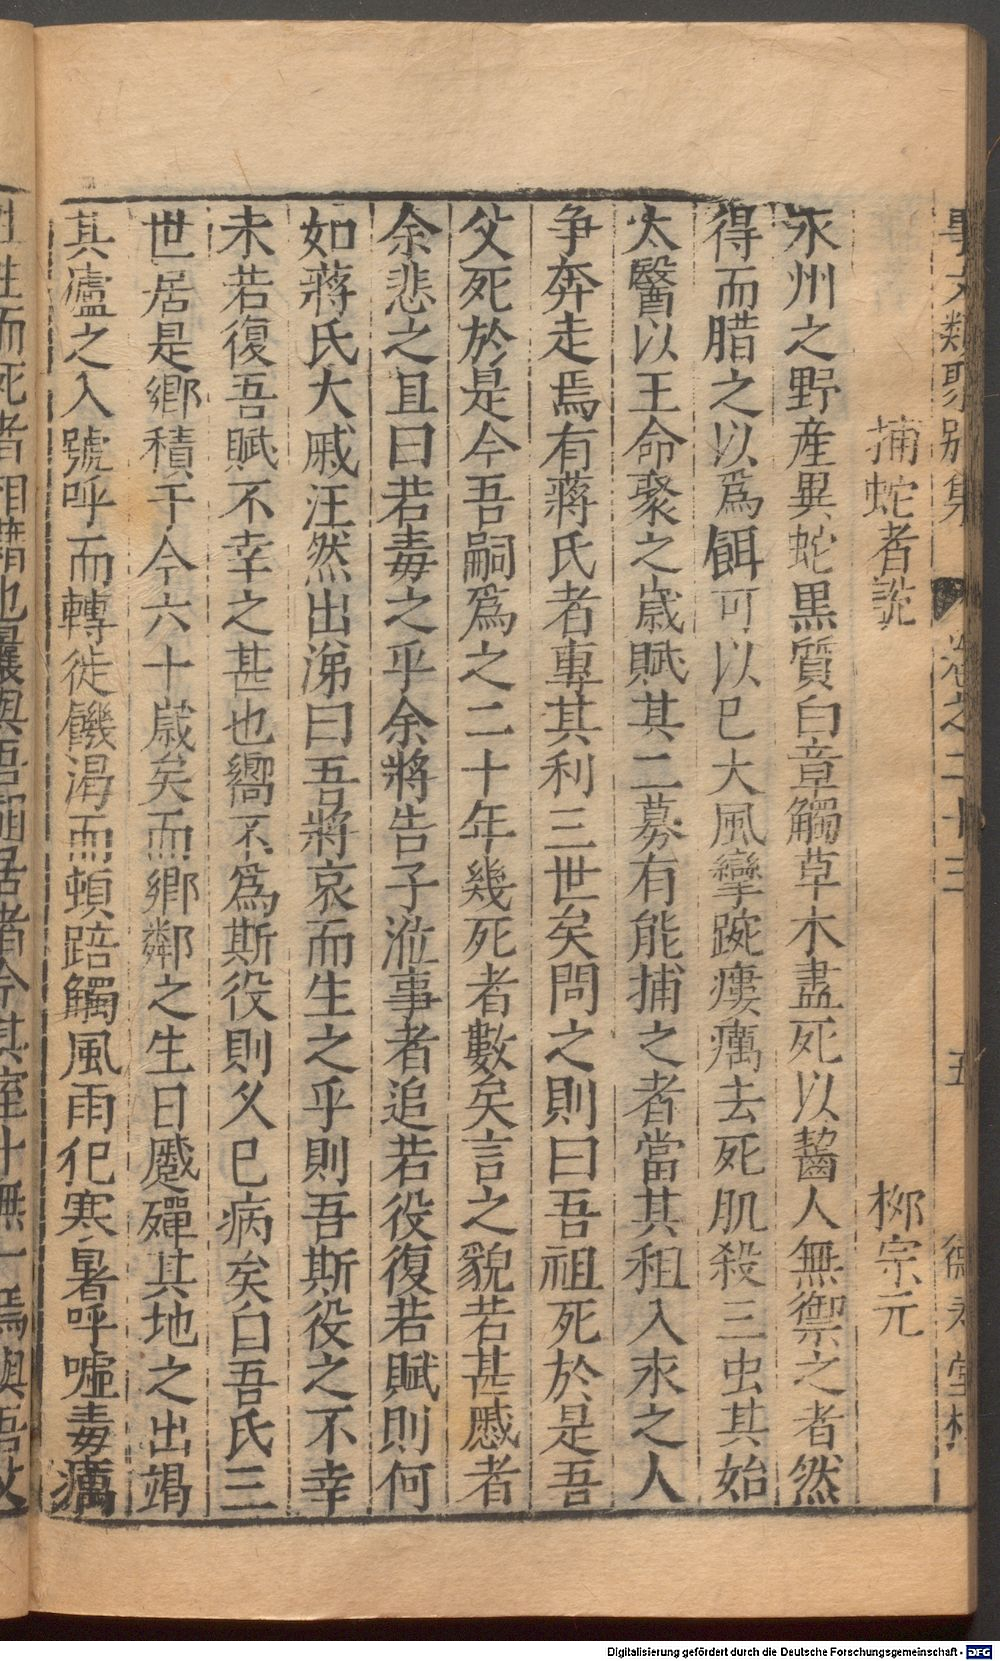 事文類聚別集 卷之二十三 五
捕蛇者說 柳宗元
永州之野産異蛇黒質白章觸草木盡死以齧人無禦之者然
得而腊之以爲餌可以已大風攣踠瘻癘去死肌殺三虫其始
太醫以王命聚之歲賦其二募有能捕之者當其租入永之人
争奔走焉有蔣氏者専其利三世矣問之則曰吾祖死於是吾
父死於是今吾嗣爲之二十年幾死者數矣言之貌若甚慼者
余悲之且曰若毒之乎余將告于涖事者追若役復若賦則何
如蔣氏大戚汪然出涕曰吾將哀而生之乎則吾斯役之不幸
未若復吾賦不幸之甚也嚮不爲斯役則久已病矣自吾氏三
世居是鄉積于今六十歲矣而鄉鄰之生日蹙殫其地之出竭
其廬之入號呼而轉徙饑渴而頓踣觸風雨犯寒暑呼噓毒癘
而死者相藉也曩與吾祖居者今其室十無一焉與吾父
Digitalisierung gefördert durch die Deutsche Forschungsgemeinschaft - DFG